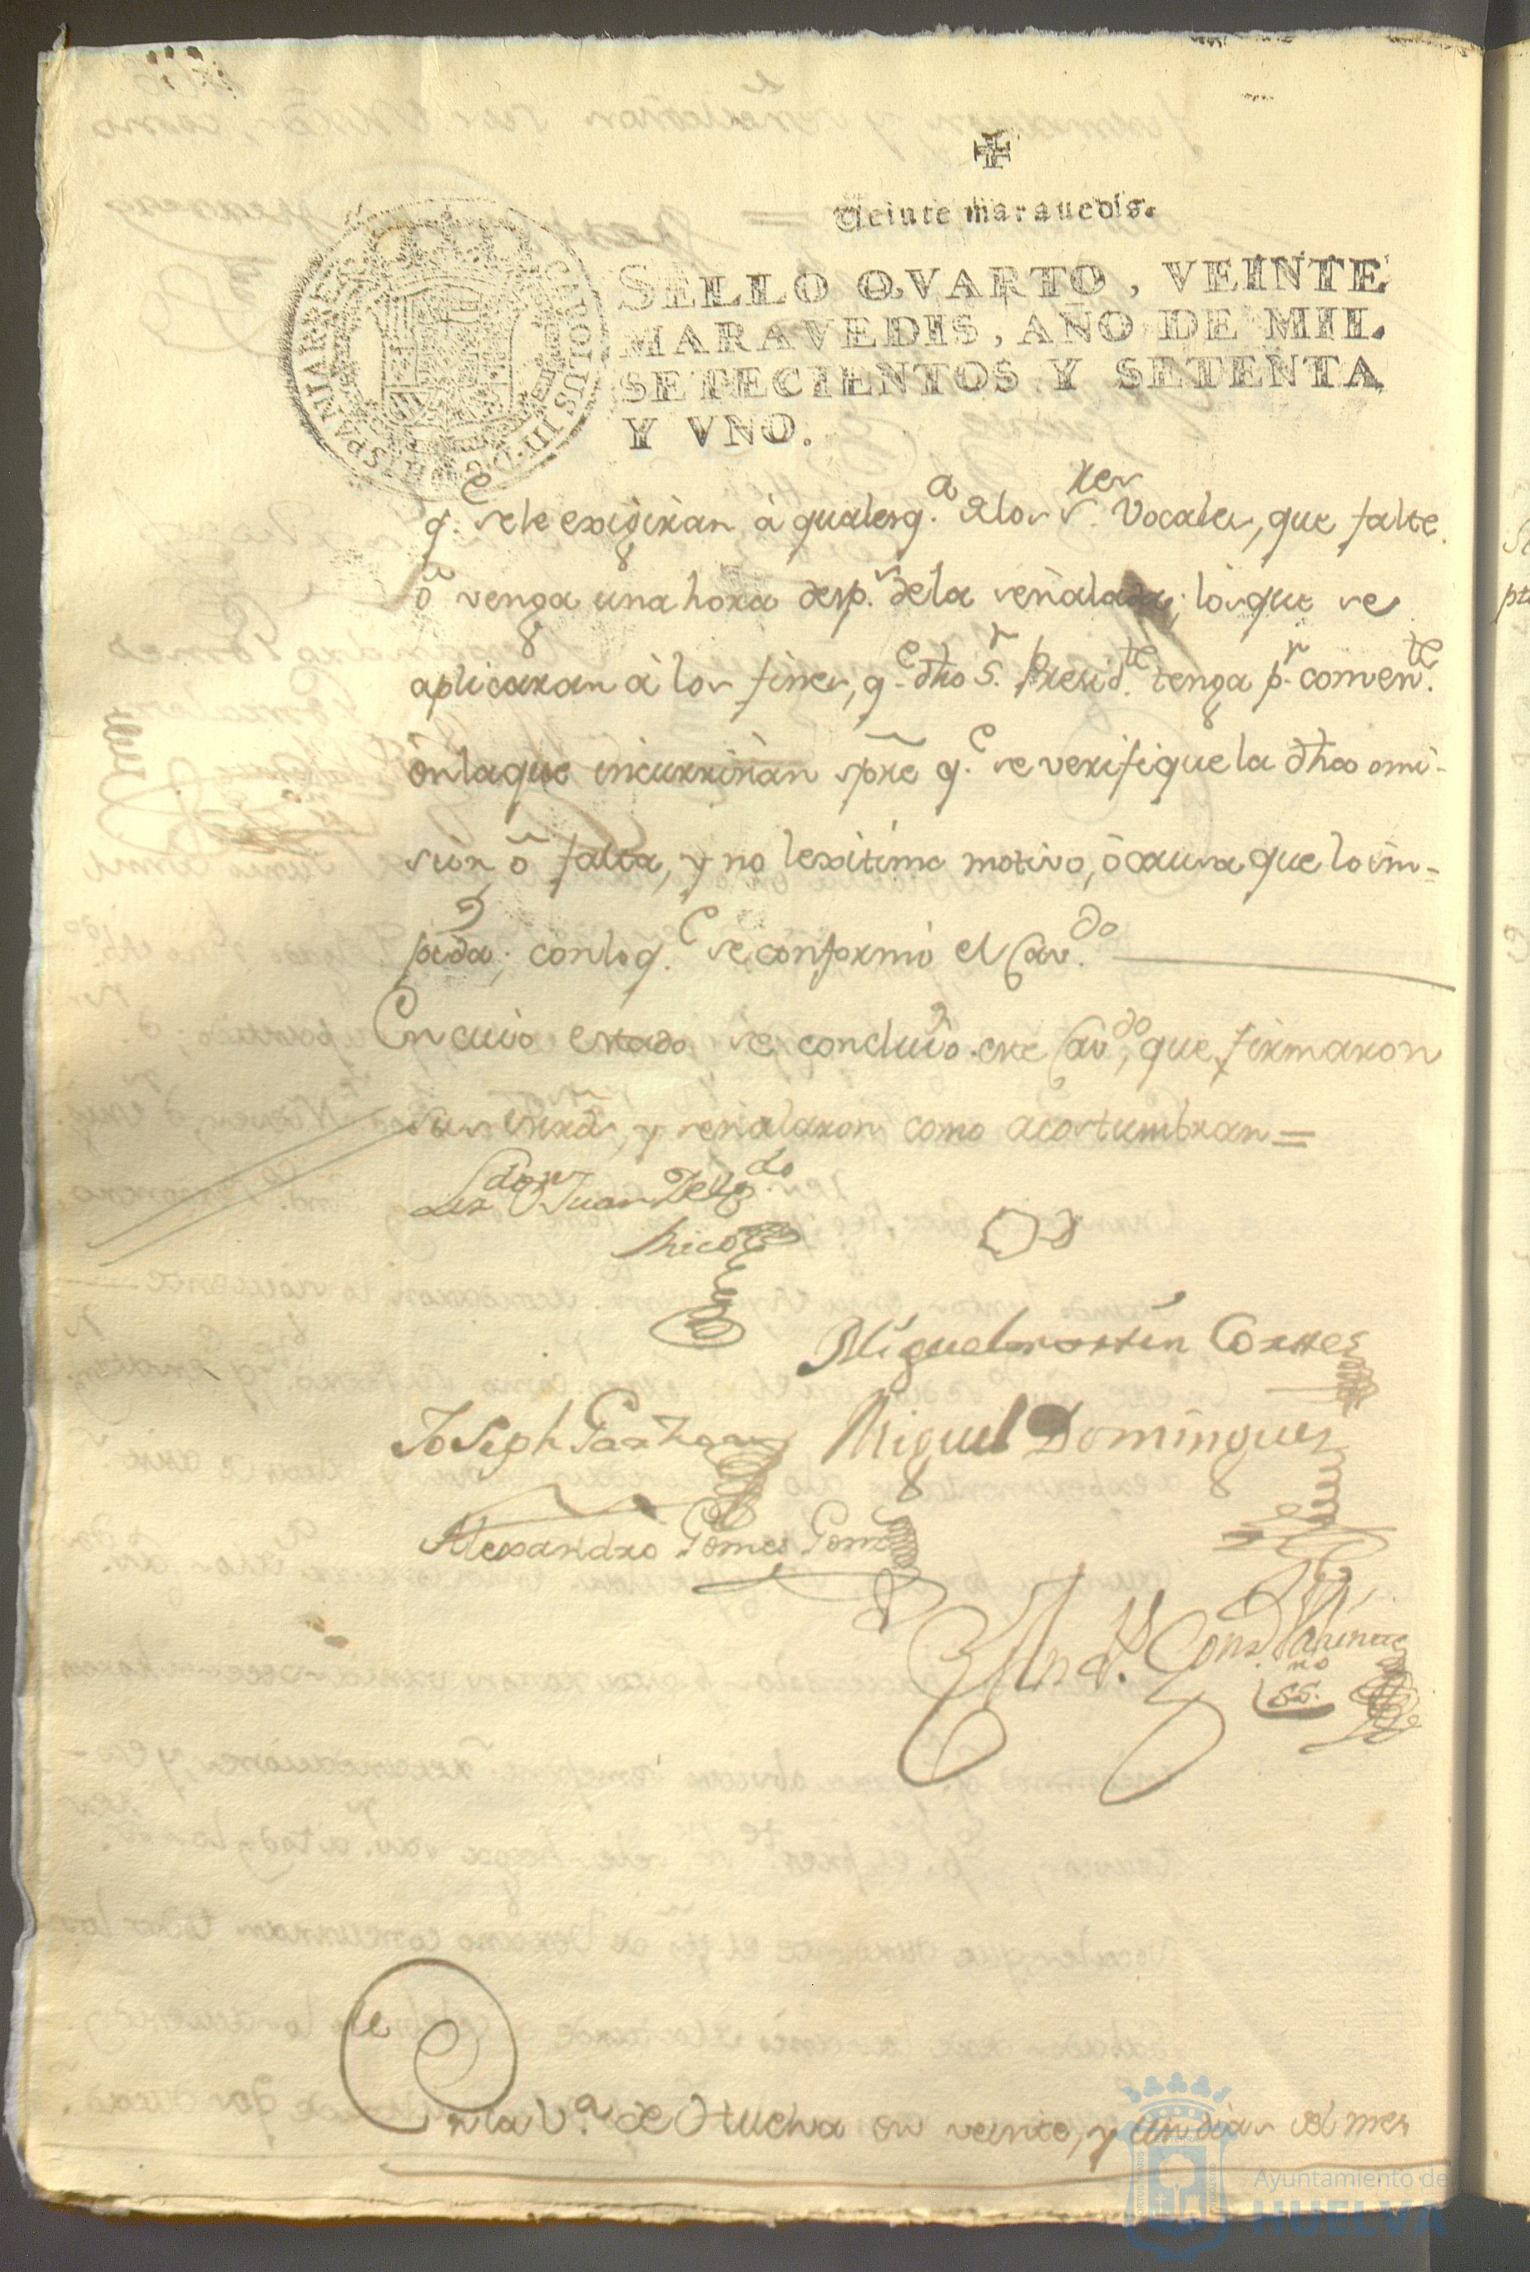 Veinte maravedis.
SELLO QVARTO, VEINTE
MARAVEDIS, AÑO DE MIL
SETECIENTOS Y SETENTA
Y VNO.
CAROLUS III D G
HISPANIAR REX
q.e se le exigiràn à qualesq.a de los s.res Vocales, que falte
ô venga una hora desp.s de la señalada; los que se
aplicaràn à los fines, q.e dho S.r Presid.te tenga p.r comven.te
ôn la que incurriràn spre q.e se verifique la dha omi-
sion ô falta, y no lexitimo motivo, ô causa que lo im-
pida; con lo q.e se conformò el Cav.do
En cuio estado se concluiò este Cav.do, que firmaron
sus mrds, y señalaron como acostumbran =
Liz.do Dn Juan Delg.do
Rico
Miguel martin Cortes
Joseph Garzon
Miguel Domingues
Alexandro Gomes Gomes
And.s
ss.no
En la V.a de Huelva en veinte, y un dias del mes
Ayuntamiento de
HUELVA